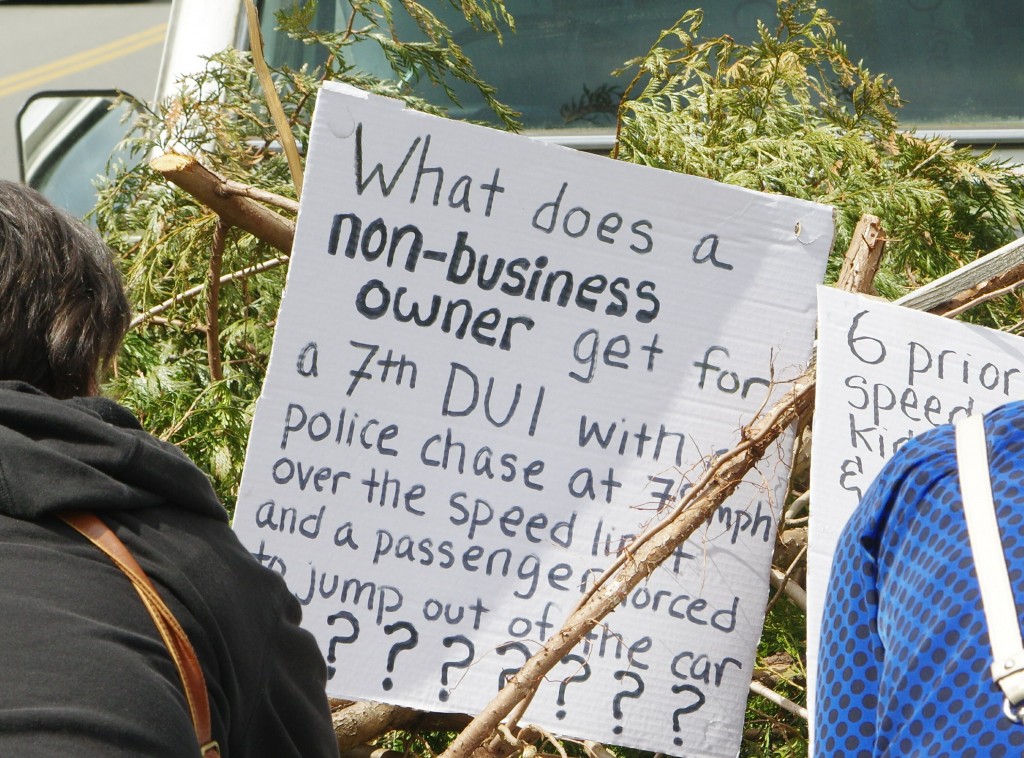 What does a
non-business
owner get for
a 7th DUI with
police chase at mph
over the speed limit
and a passenger forced
to jump out of the car
? ? ? ? ? ? ?
6 prior
speed
&